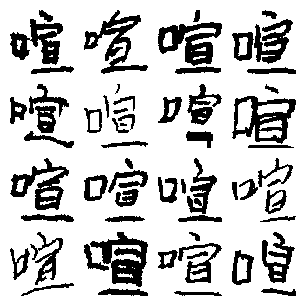 喧喧喧喧
喧喧喧喧
喧喧喧喧
喧喧喧喧